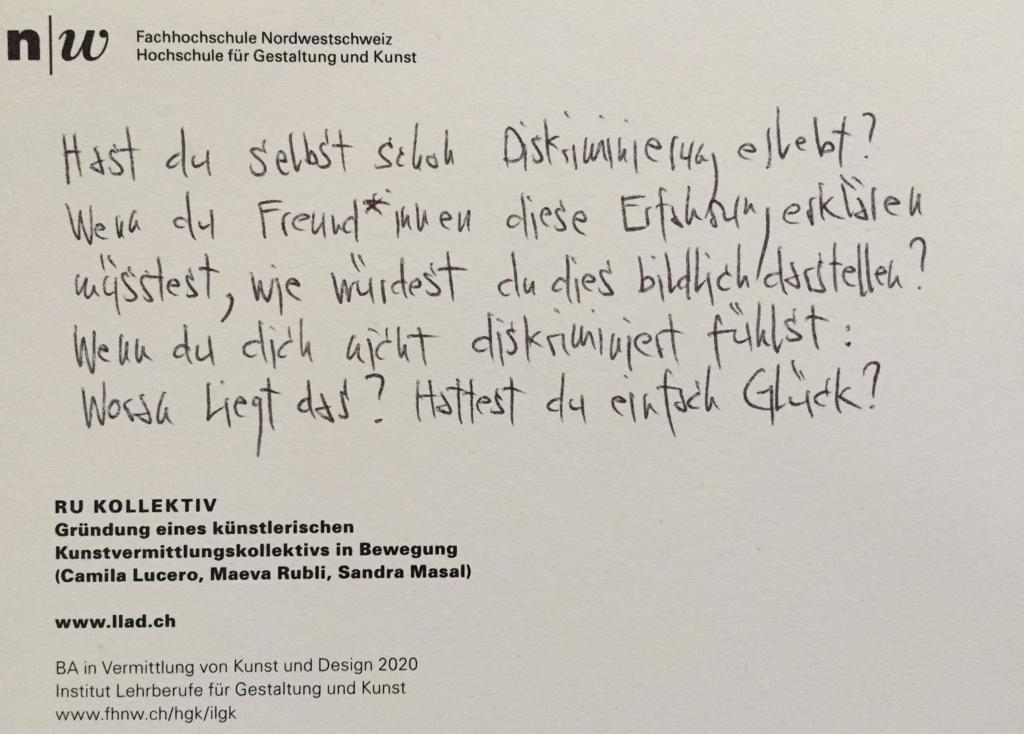 n|w
Fachhochschule Nordwestschweiz
Hochschule für Gestaltung und Kunst
Hast du selbst schon Diskriminierung erlebt?
Wenn du Freund*innen diese Erfahrung erklären
müsstest, wie würdest du dies bildlich darstellen?
Wenn du dich nicht diskriminiert fühlst:
Woran liegt das? Hattest du einfach Glück?
RU KOLLEKTIV
Gründung eines künstlerischen
Kunstvermittlungskollektivs in Bewegung
(Camila Lucero, Maeva Rubli, Sandra Masal)
www.llad.ch
BA in Vermittlung von Kunst und Design 2020
Institut Lehrberufe für Gestaltung und Kunst
www.fhnw.ch/hgk/ilgk